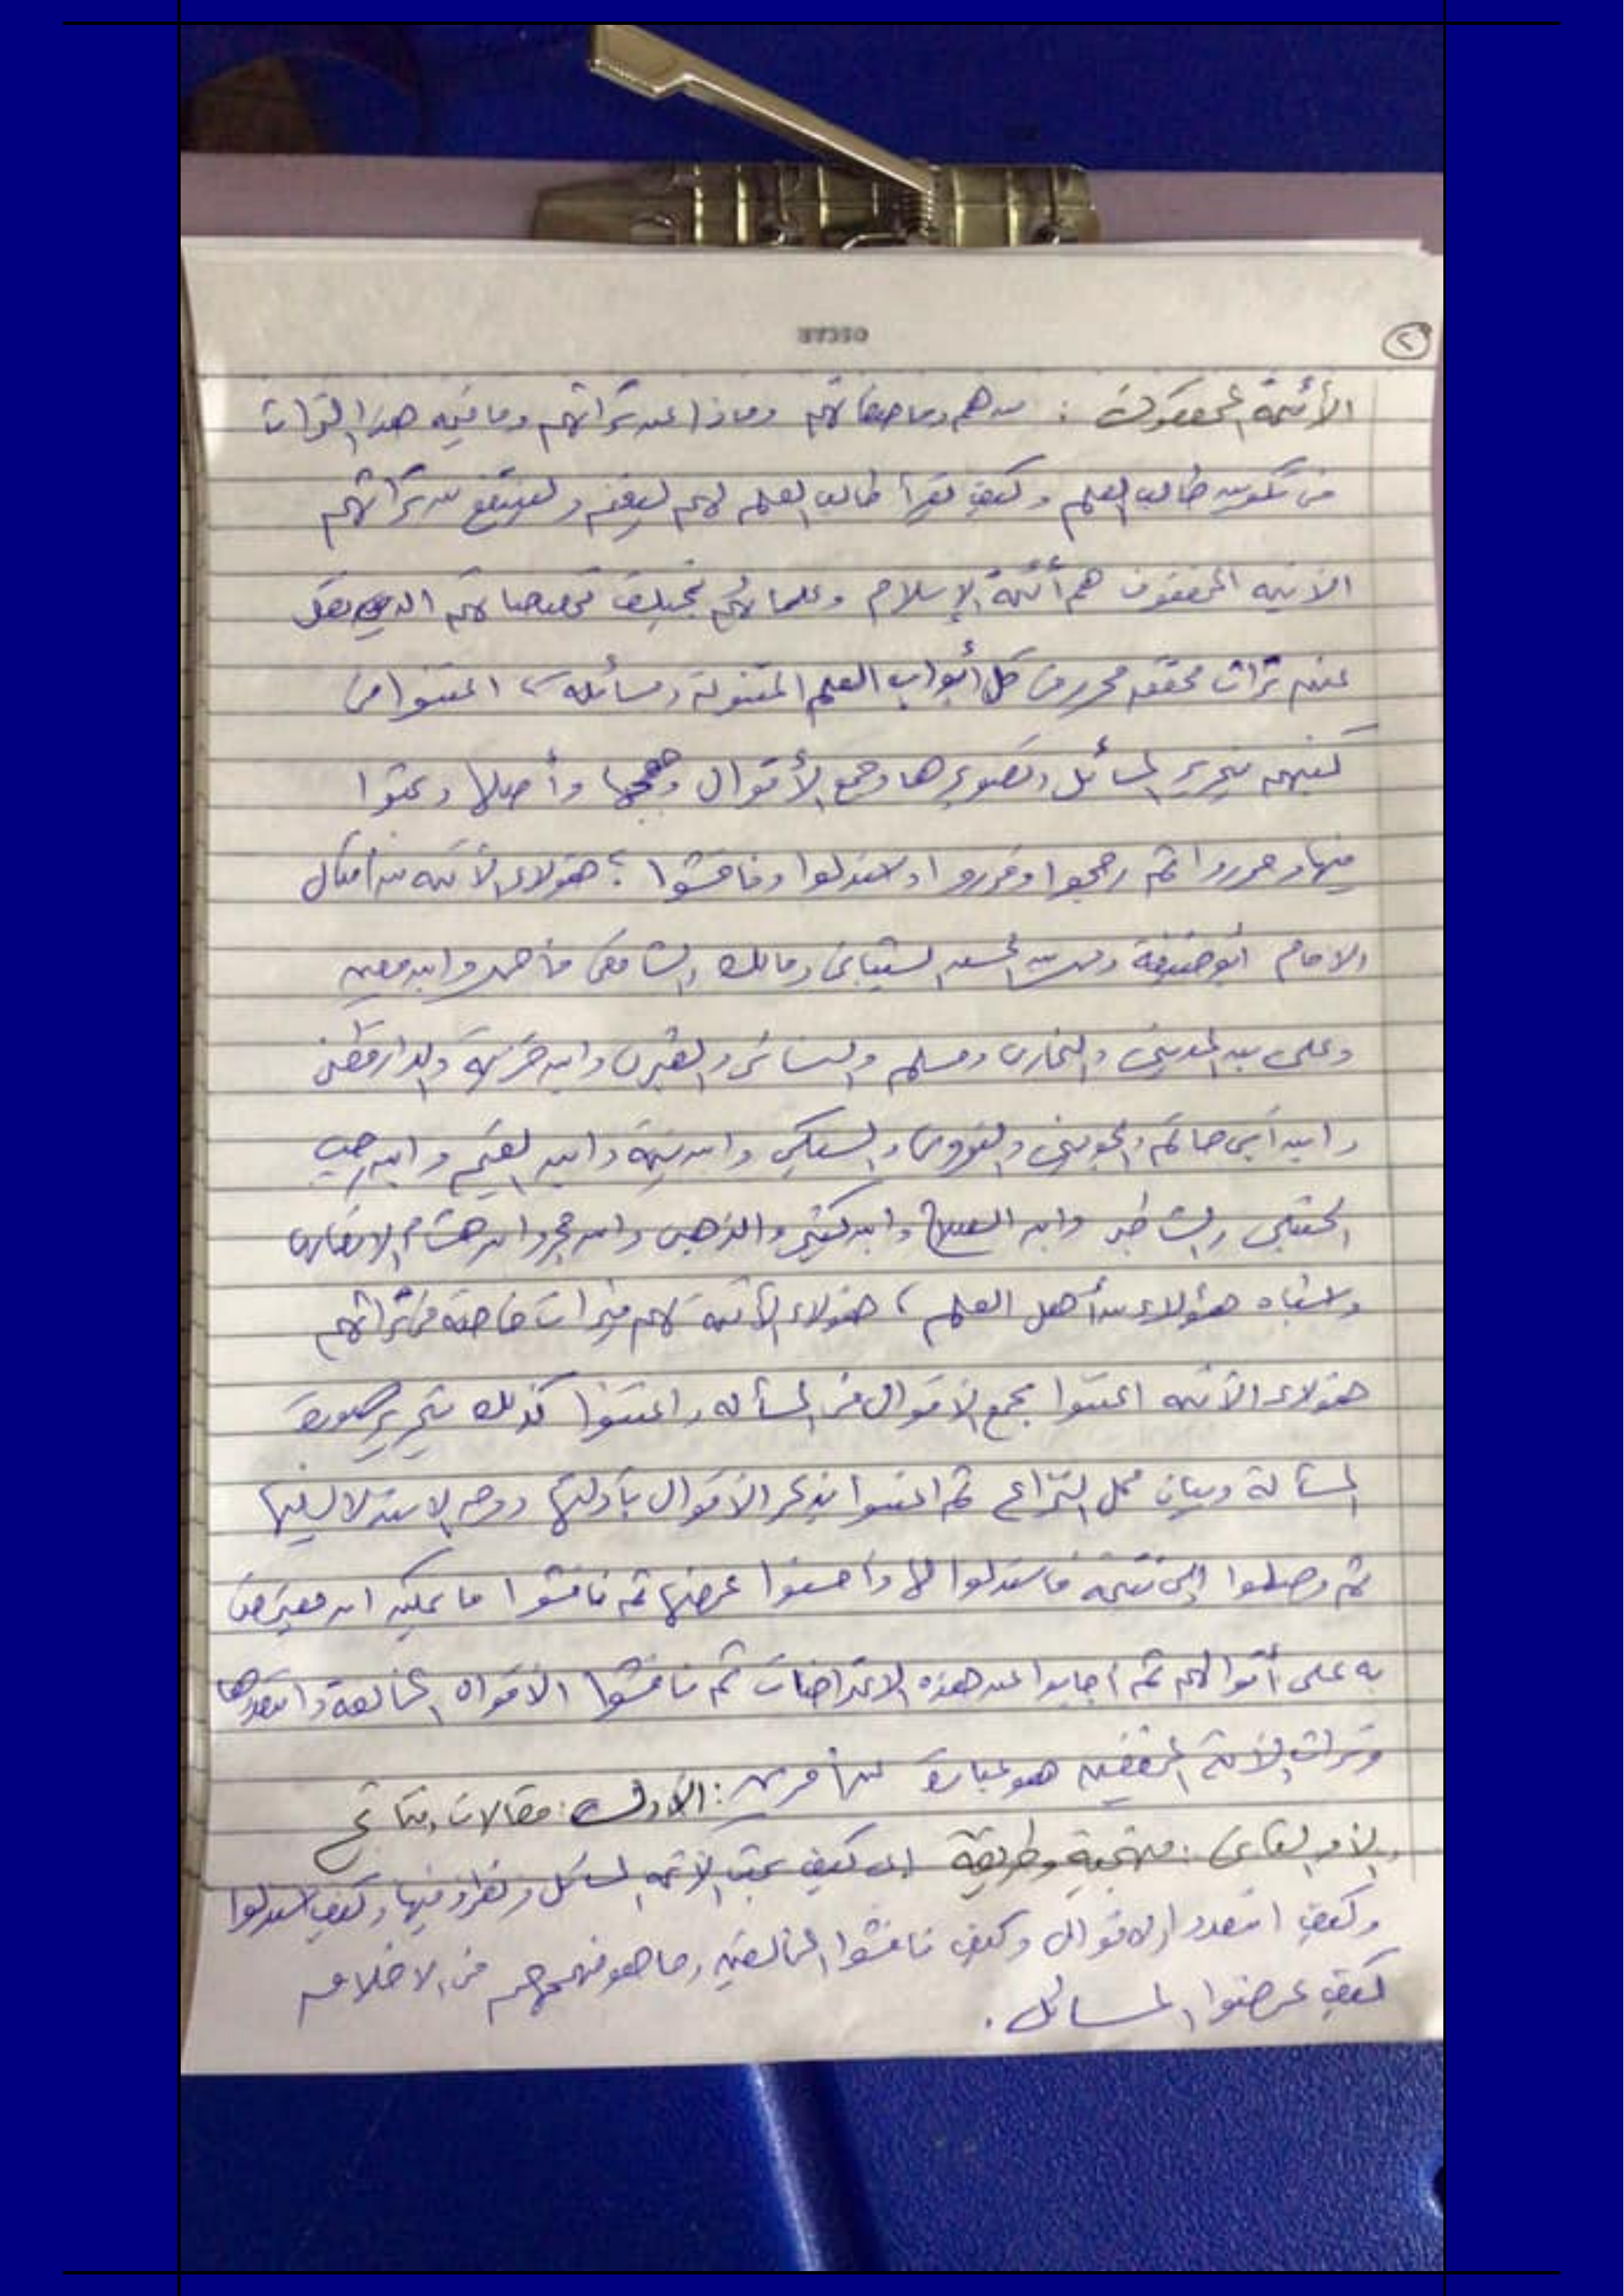 ٢
الأئمة المحققون : من هم وما صفاتهم وماذا عن تراثهم وما فيه هذا التراث
في تكوين طالب العلم وكيف يقرأ طالب العلم لهم ليفهم ولينتفع من تراثهم
الائمة المحققون هم أئمة الإسلام وعلمائهم بمختلف تخصصاتهم الذين
عنهم تراث محقق محرر في كل أبواب العلم المتنوعة ومسائله ، اعتنوا في
كتبهم بتحرير المسائل وتصويرها وجمع الأقوال وحججها وأصولها وبحثوا
فيها وحرروا ثم رجحوا وقرروا واستدلوا وناقشوا ؛ هؤلاء الأئمة من أمثال
الامام أبو حنيفة ومحمد بن الحسن الشيباني ومالك والشافعي وأحمد وابن معين
وعلي بن المديني والبخاري ومسلم والنسائي والطبري وابن خزيمة والدارقطني
وابن أبي حاتم والجويني والنووي والسبكي وابن تيمية وابن القيم وابن رجب
الحنبلي والشاطبي وابن الصلاح وابن كثير والذهبي وابن حجر وابن هشام الانصاري
واشباه هؤلاء من أهل العلم ، هؤلاء الأئمة لهم ميزات خاصة في تراثهم
هؤلاء الأئمة اعتنوا بجمع الاقوال في المسألة واعتنوا كذلك بتحرير صورة
المسألة وبيان محل النزاع ثم اعتنوا بذكر الأقوال بأدلتها ووجه الاستدلال
ثم وصلوا إلى نتيجة فاستدلوا لها وأحسنوا عرضها ثم ناقشوا ما يمكن ان يعترض
به على أقوالهم ثم أجابوا عن هذه الاعتراضات ثم ناقشوا الاقوال المخالفة وانتقدوها
وتراث الأئمة المحققين هو عبارة عن أمرين : الأول : مقالات ونتائج
والأمر الثاني : منهجية وطريقة أي كيف بحث الأئمة المسائل ونظروا فيها وكيف استدلوا
وكيف انتقدوا الاقوال وكيف ناقشوا المخالفين وما هو منهجهم في الاختلاف
كيف عرضوا المسائل .